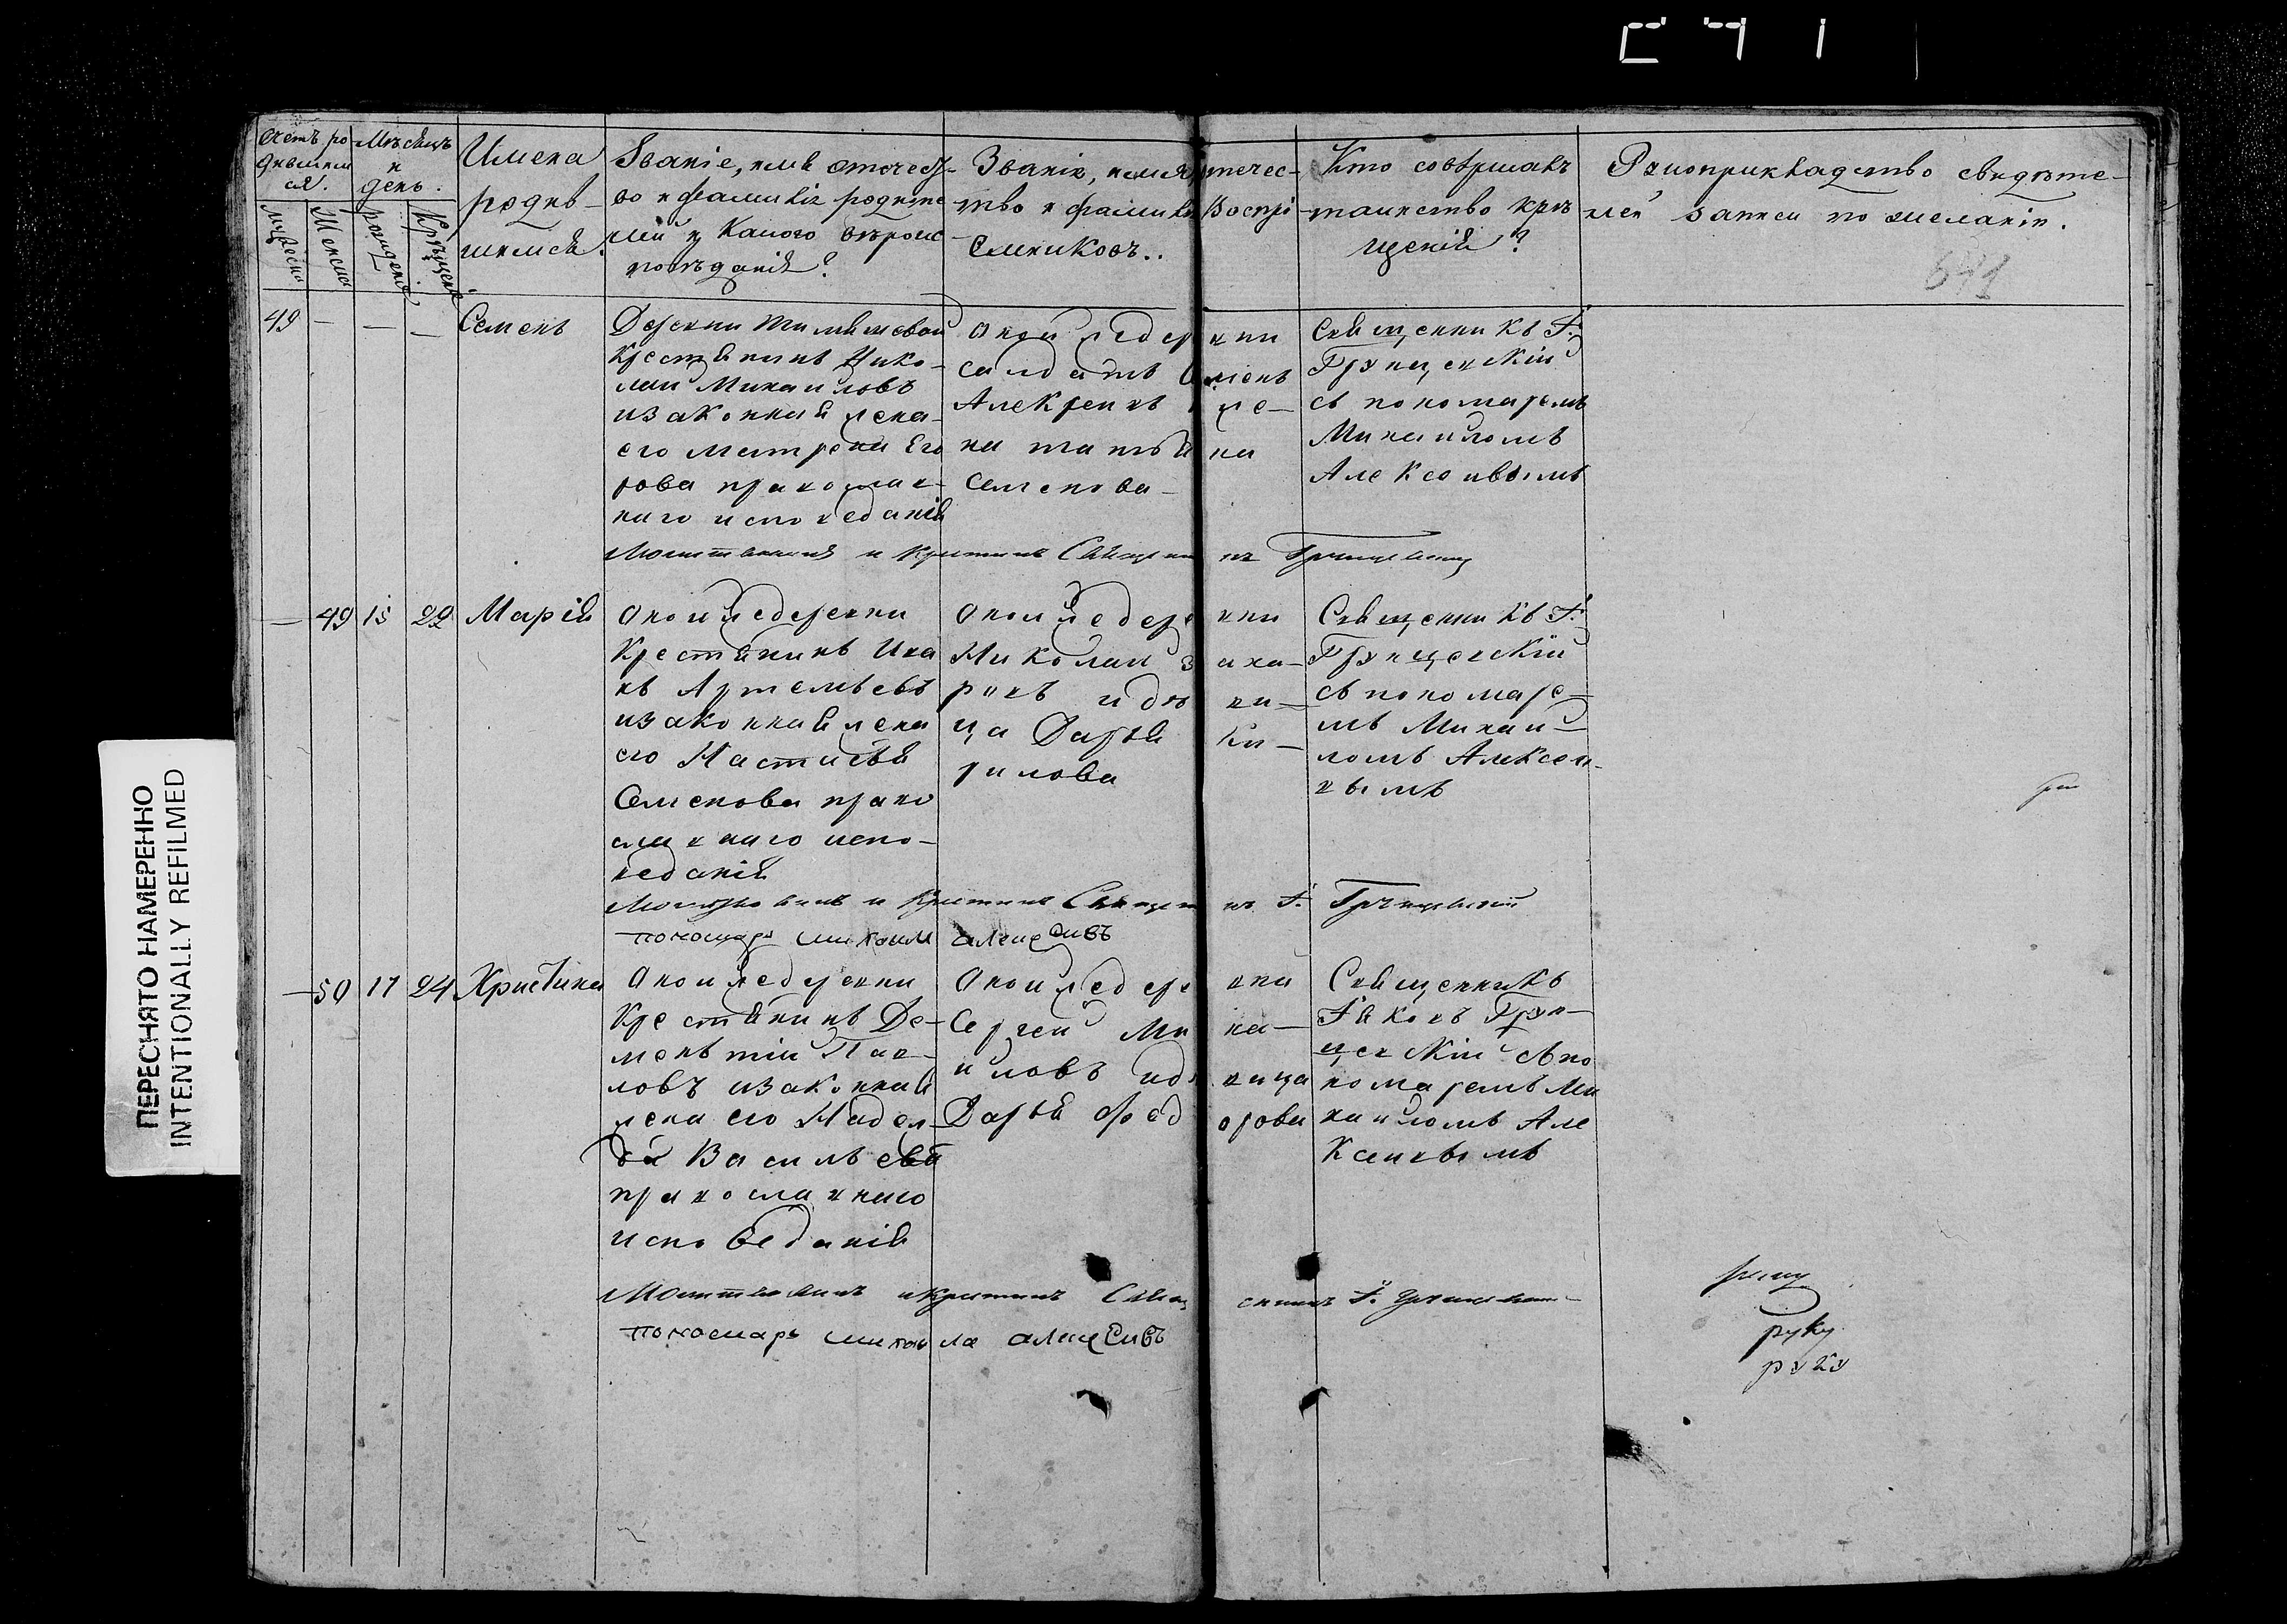 641
Счетъ ро
дившихъ
ся.
Мѣсяцъ
и
день.
Имена
родив-
шихся.
Званіе, имя отечест-
во и фамилія родите
лей и Какого вѣроис-
повѣданія?
Званіе, имя, отечес-
тво и фамилія Воспрі
емниковъ..
Кто совершалъ
таинство кре
щенія?
Рукоприкладство свидѣте-
лей записи по желанію.
Мужеска
Женска
рожденія
Крещенія
49 — — — Семенъ
Деревни
Крестьянинъ Нико-
лай Михаиловъ
изаконная жена
его Матрена Его
рова православ-
наго исповеданія
Оной жедеревни
салдатъ Семенъ
и же-
на татьяна
Семенова-
Священникъ І.
съ пономаремъ
Михаиломъ
Алексеивымъ
Молитвовалъ и крестилъ Священникъ
— 49 15 22 Марія
Оной жедеревни
Крестьянинъ Ива
нъ Артемьевъ
изаконная жена
его Настасья
Семенова право
славнаго испо-
веданія
Оной жедеревни
Николай Заха-
ровъ идеви-
ца Дарья Ки-
рилова
Священникъ І.
съ пономаре-
мъ Михаи-
ломъ Алексеи-
вымъ
Молитвовалъ и Крестилъ Священникъ І.
пономарь михаил алексивъ
— 50 17 24 Христина
Оной жедеревни
Крестьянинъ Де-
ментій Пав-
ловъ изаконная
жена его Надеж-
да Васильева
православнаго
исповеданія
Оной жедеревни
Сергей Миха-
иловъ идевица
Дарья Федорова
Священникъ
Іяковъ
съ по
номаремъ Ми
хаиломъ Але
Ксеивымъ
Молитвовалъ и Крестилъ Священникъ І.
пономарь михаила алексивъ
руку
руку
ПЕРЕСНЯТО НАМЕРЕННО
INTENTIONALLY REFILMED